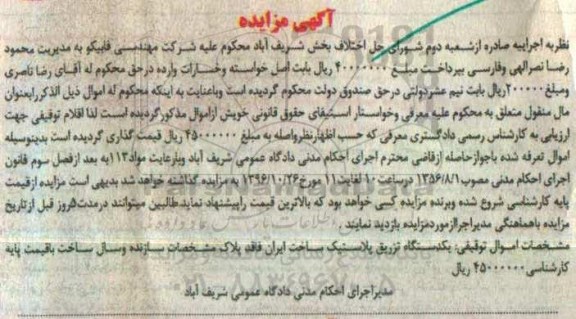 آگهی مزایده
نظر به اجراییه صادره ازشعبه دوم شورای حل اختلاف بخش شریف آباد محکوم علیه شرکت مهندسی فابیکو به مدیریت محمود
رضا نصرالهی وفارسی بپرداخت مبلغ ۴۰۰۰۰۰۰۰ ریال بابت اصل خواسته وخسارات وارده درحق محکوم له آقای رضا ناصری
ومبلغ ۲۰۰۰۰۰۰ ریال بابت نیم عشردولتی درحق صندوق دولت محکوم گردیده است وباعنایت به اینکه محکوم له اموال ذیل الذکررابعنوان
مال منقول متعلق به محکوم علیه معرفی وخواستار استیفای حقوق قانونی خویش ازاموال مذکورگردیده است لذا اقلام توقیفی جهت
ارزیابی به کارشناس رسمی دادگستری معرفی که حسب اظهارنظرواصله به مبلغ ۴۵۰۰۰۰۰۰ ریال قیمت گذاری گردیده است بدینوسیله
اموال تعرفه شده باجوازحاصله ازقاضی محترم اجرای احکام مدنی دادگاه عمومی شریف آباد وبارعایت مواد۱۱۳به بعد ازفصل سوم قانون
اجرای احکام مدنی مصوب۱۳۵۶/۸/۱ درساعت ۱۰ لغایت ۱۱ مورخ ۱۳۹۶/۱۰/۲۶ به مزایده گذاشته خواهد شد بدیهی است مزایده ازقیمت
پایه کارشناسی شروع شده وبرنده مزایده کسی خواهد بود که بالاترین قیمت راپیشنهاد نماید.طالبین میتوانند درمدت۵روز قبل ازتاریخ
مزایده باهماهنگی مدیراجراازموردمزایده بازدید نمایند .
مشخصات اموال توقیفی: یکدستگاه تزریق پلاستیک ساخت ایران فاقد پلاک مشخصات سازنده وسال ساخت باقیمت پایه
کارشناسی ۴۵۰۰۰۰۰۰ ریال
مدیراجرای احکام مدنی دادگاه عمومی شریف آباد